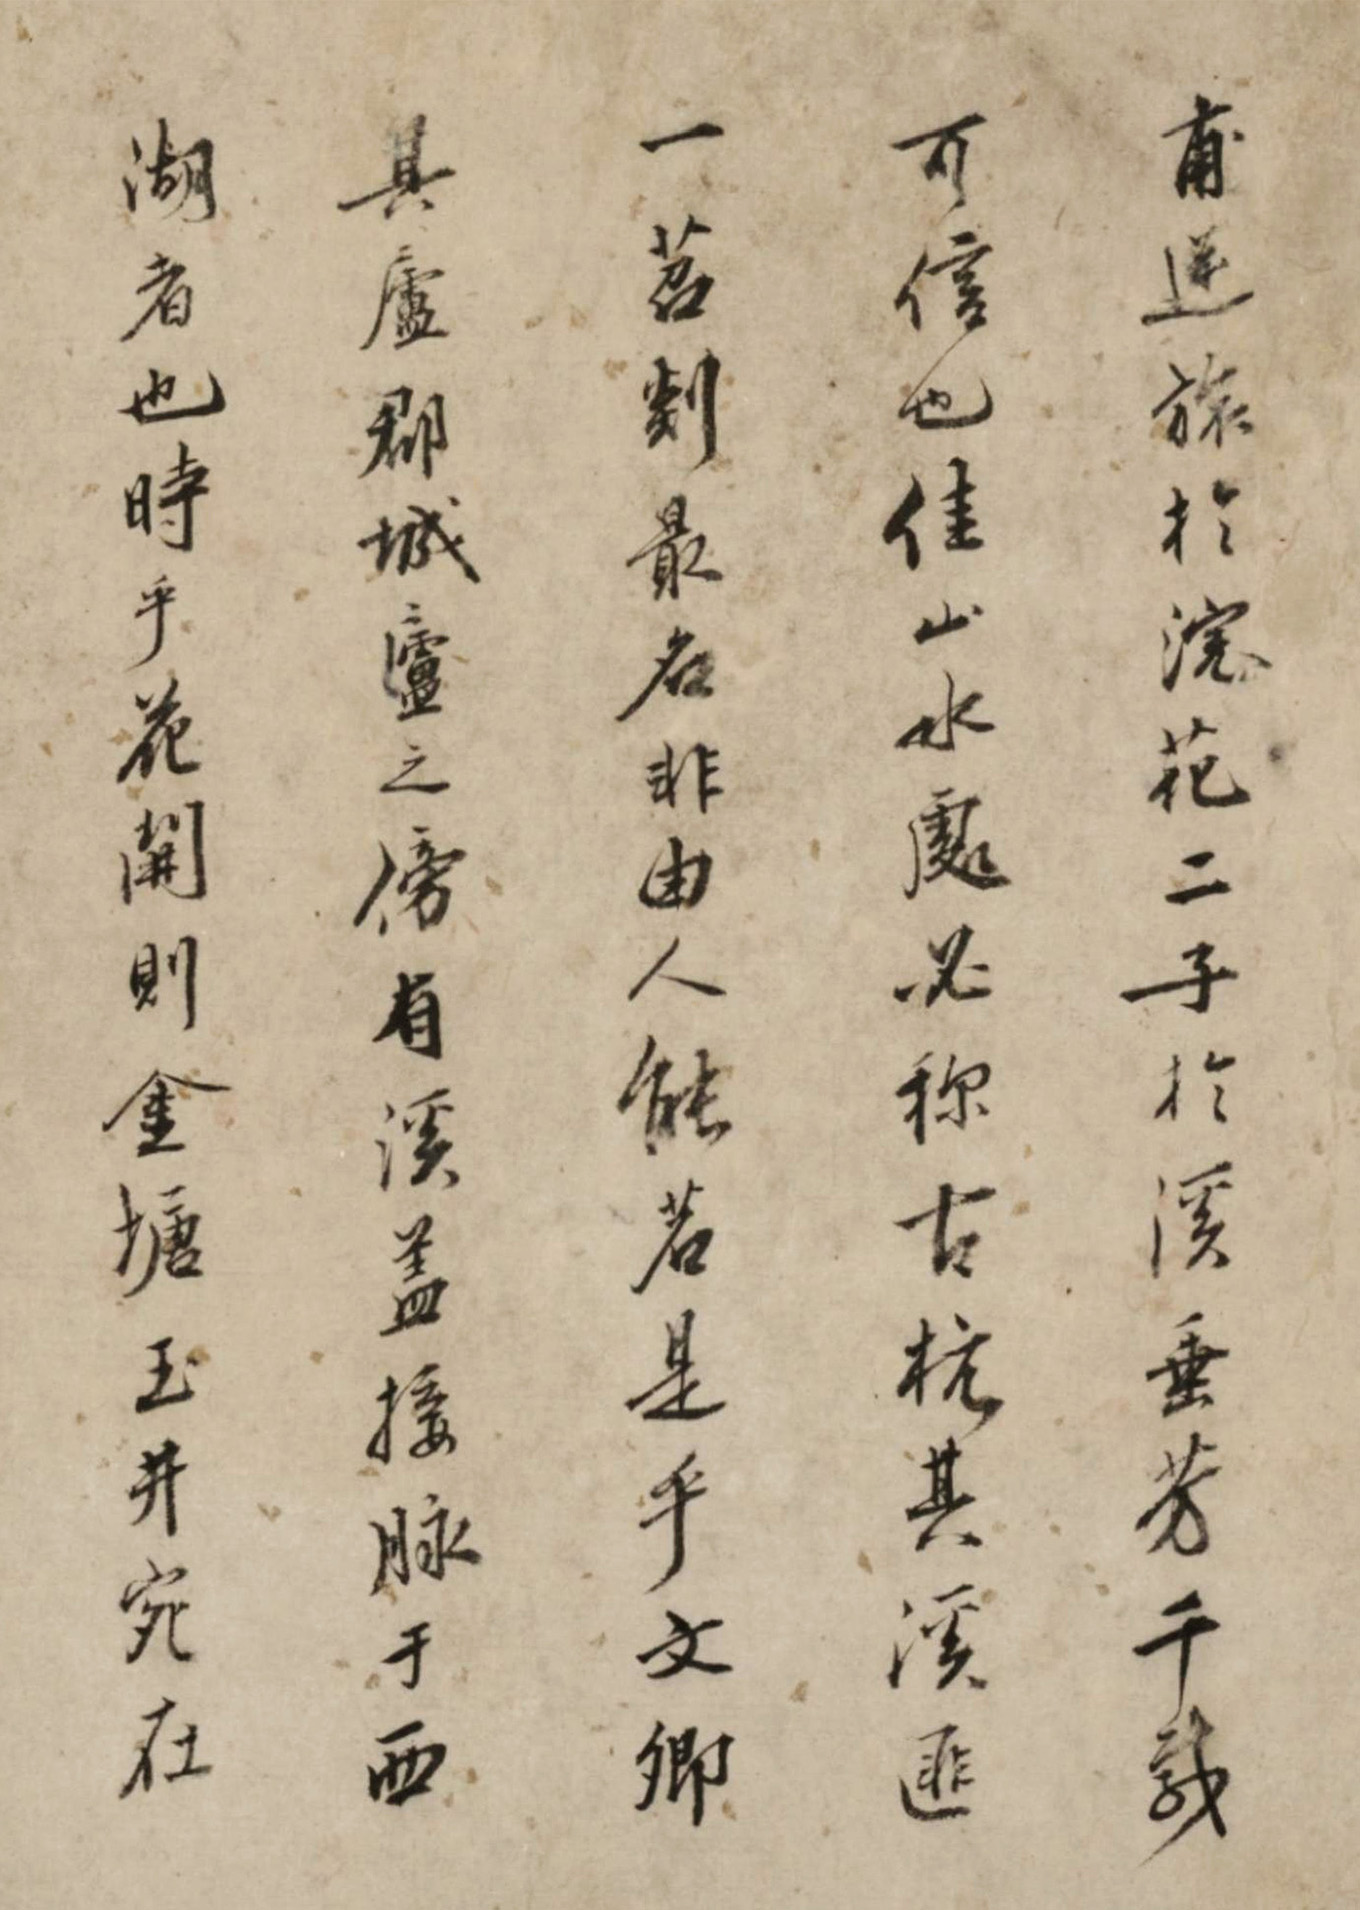 甫逆旅於浣花二子於溪垂芳千載
可信也佳山水處必称古杭其溪匪
一苕剡最名非由人能若是乎文卿
其廬郡城廬之傍有溪盖接脉于西
湖者也時乎花開則金塘玉井宛在